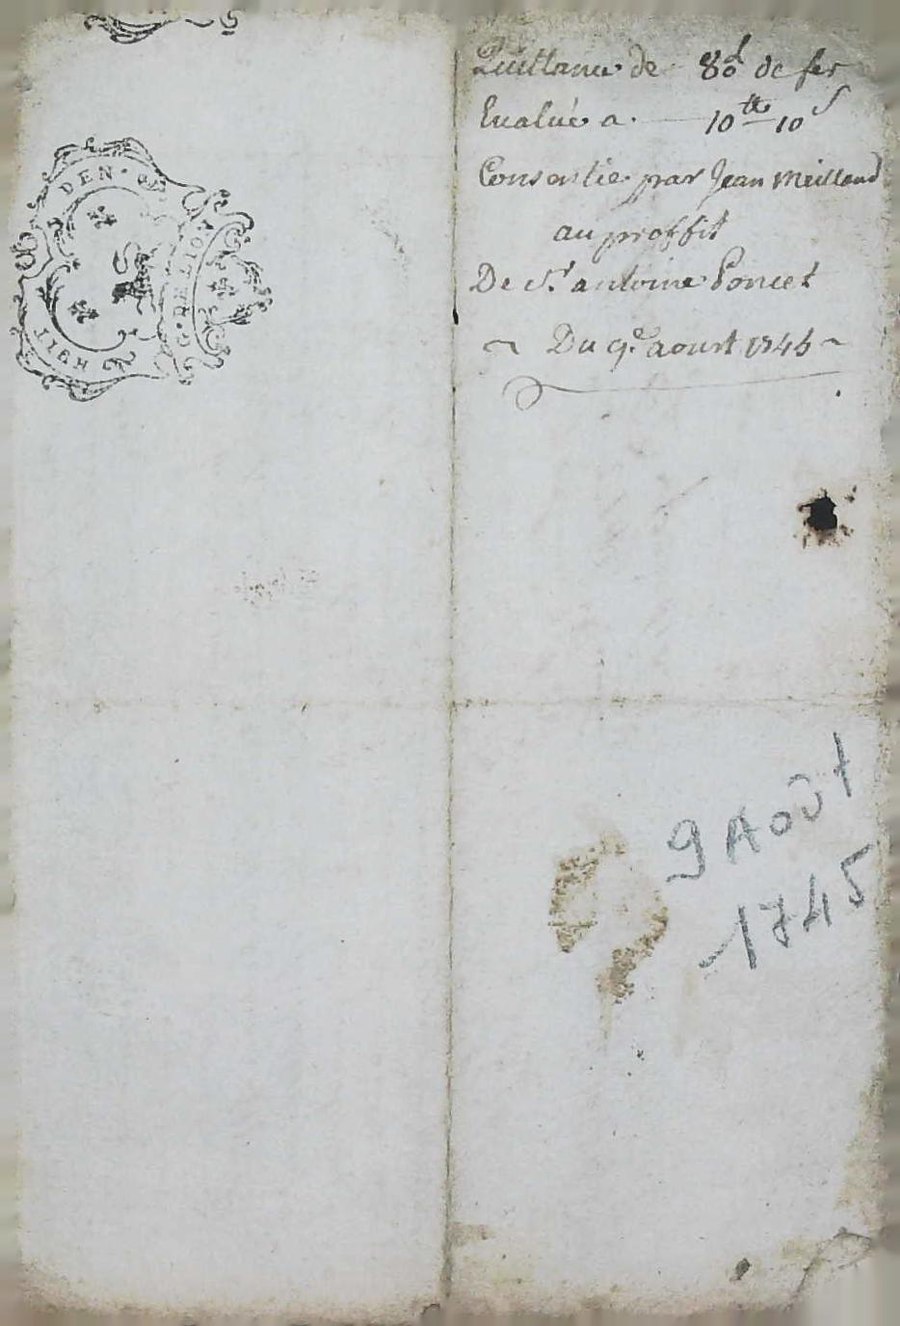 HUIT DEN.
G. DE LION
Quittance de 80 l de fer
Evaluée a 10 tt 10 s
Consentie par Jean Meilland
au proffit
De Sr. antoine Poncet
Du 9e aoust 1745
9 Août
1745